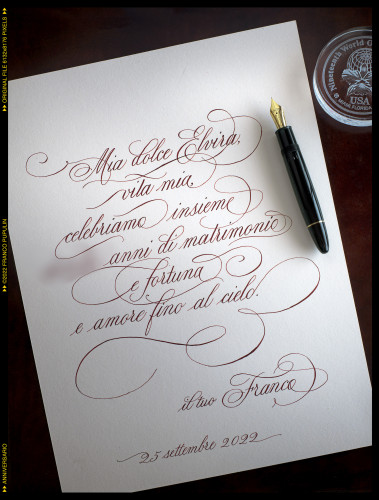 Mia dolce Elvira,
vita mia,
celebriamo insieme
anni di matrimonio
e fortuna
e amore fino al cielo.
il tuo Franco
25 settembre 2022
Nineteenth World O
USA
MIAMI FLORIDA
▶▶ ORIGINAL FILE 6132x8176 PIXELS ▶▶
▶▶ ©2022 FRANCO PUPULIN
▶▶ ANNIVERSARIO ▶▶